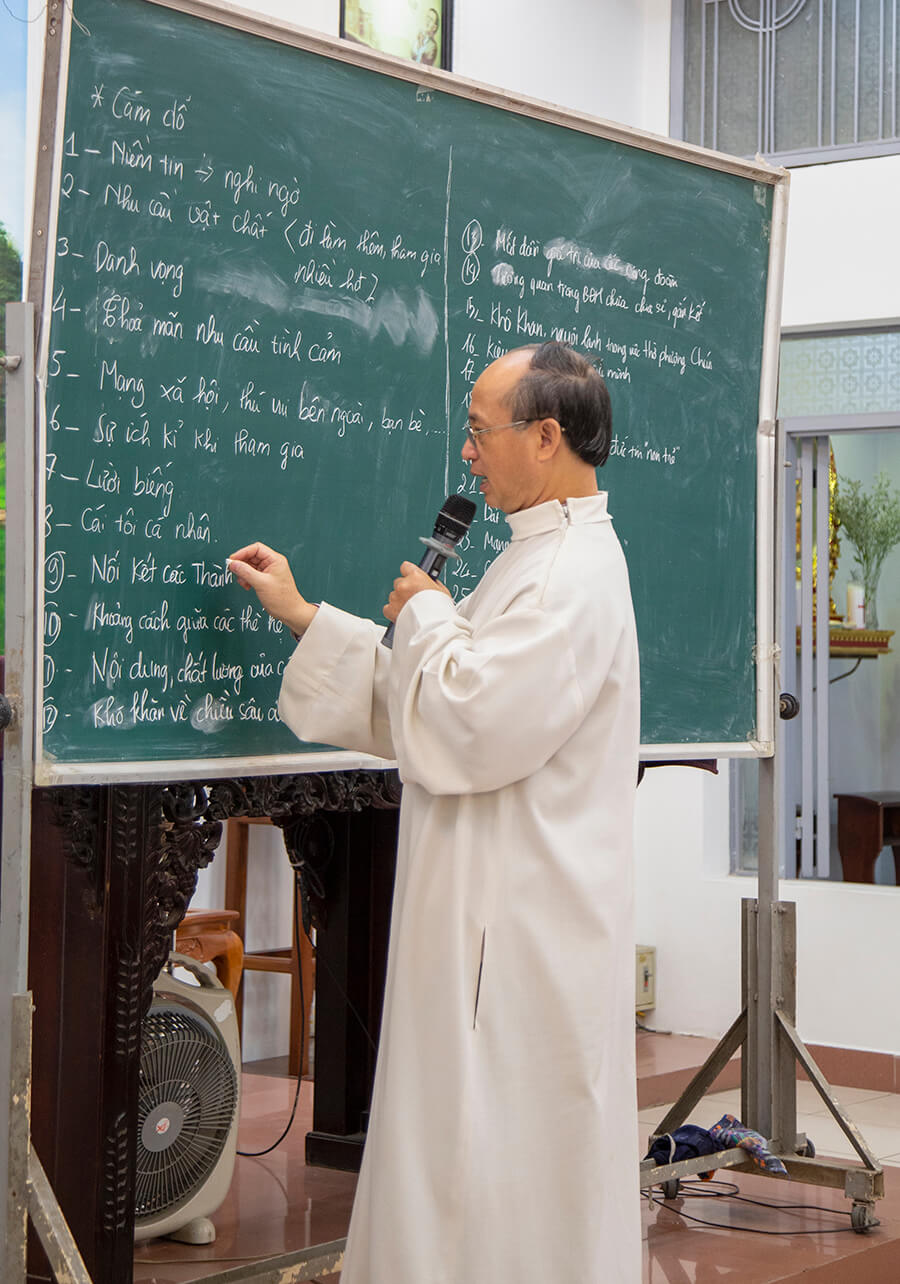 * Cám dỗ
1 - Niềm tin → nghi ngờ
2 - Nhu cầu vật chất (đi làm thêm, tham gia
nhiều hơ
3 - Danh vọng
4 - Thoả mãn nhu cầu tình cảm
5 - Mạng xã hội, thú vui bên ngoài, bạn bè,...
6 - Sự ích kỉ khi tham gia
7 - Lười biếng
8 - Cái tôi cá nhân.
9 - Nối kết các Thành
10 - Khoảng cách giữa các thế hệ
11 - Nội dung, chất lượng của
12 - Khó khăn về chiều sâu
13 - Mất dần giá trị của các cộng đoàn
14 - quan trong BĐH chưa chia sẻ, gắn kết
15 - Khô khan, nguội lạnh trong việc thờ phượng Chúa
16
17 mình
đức tin "non trẻ"
21
23 - Mạng
24 -
25